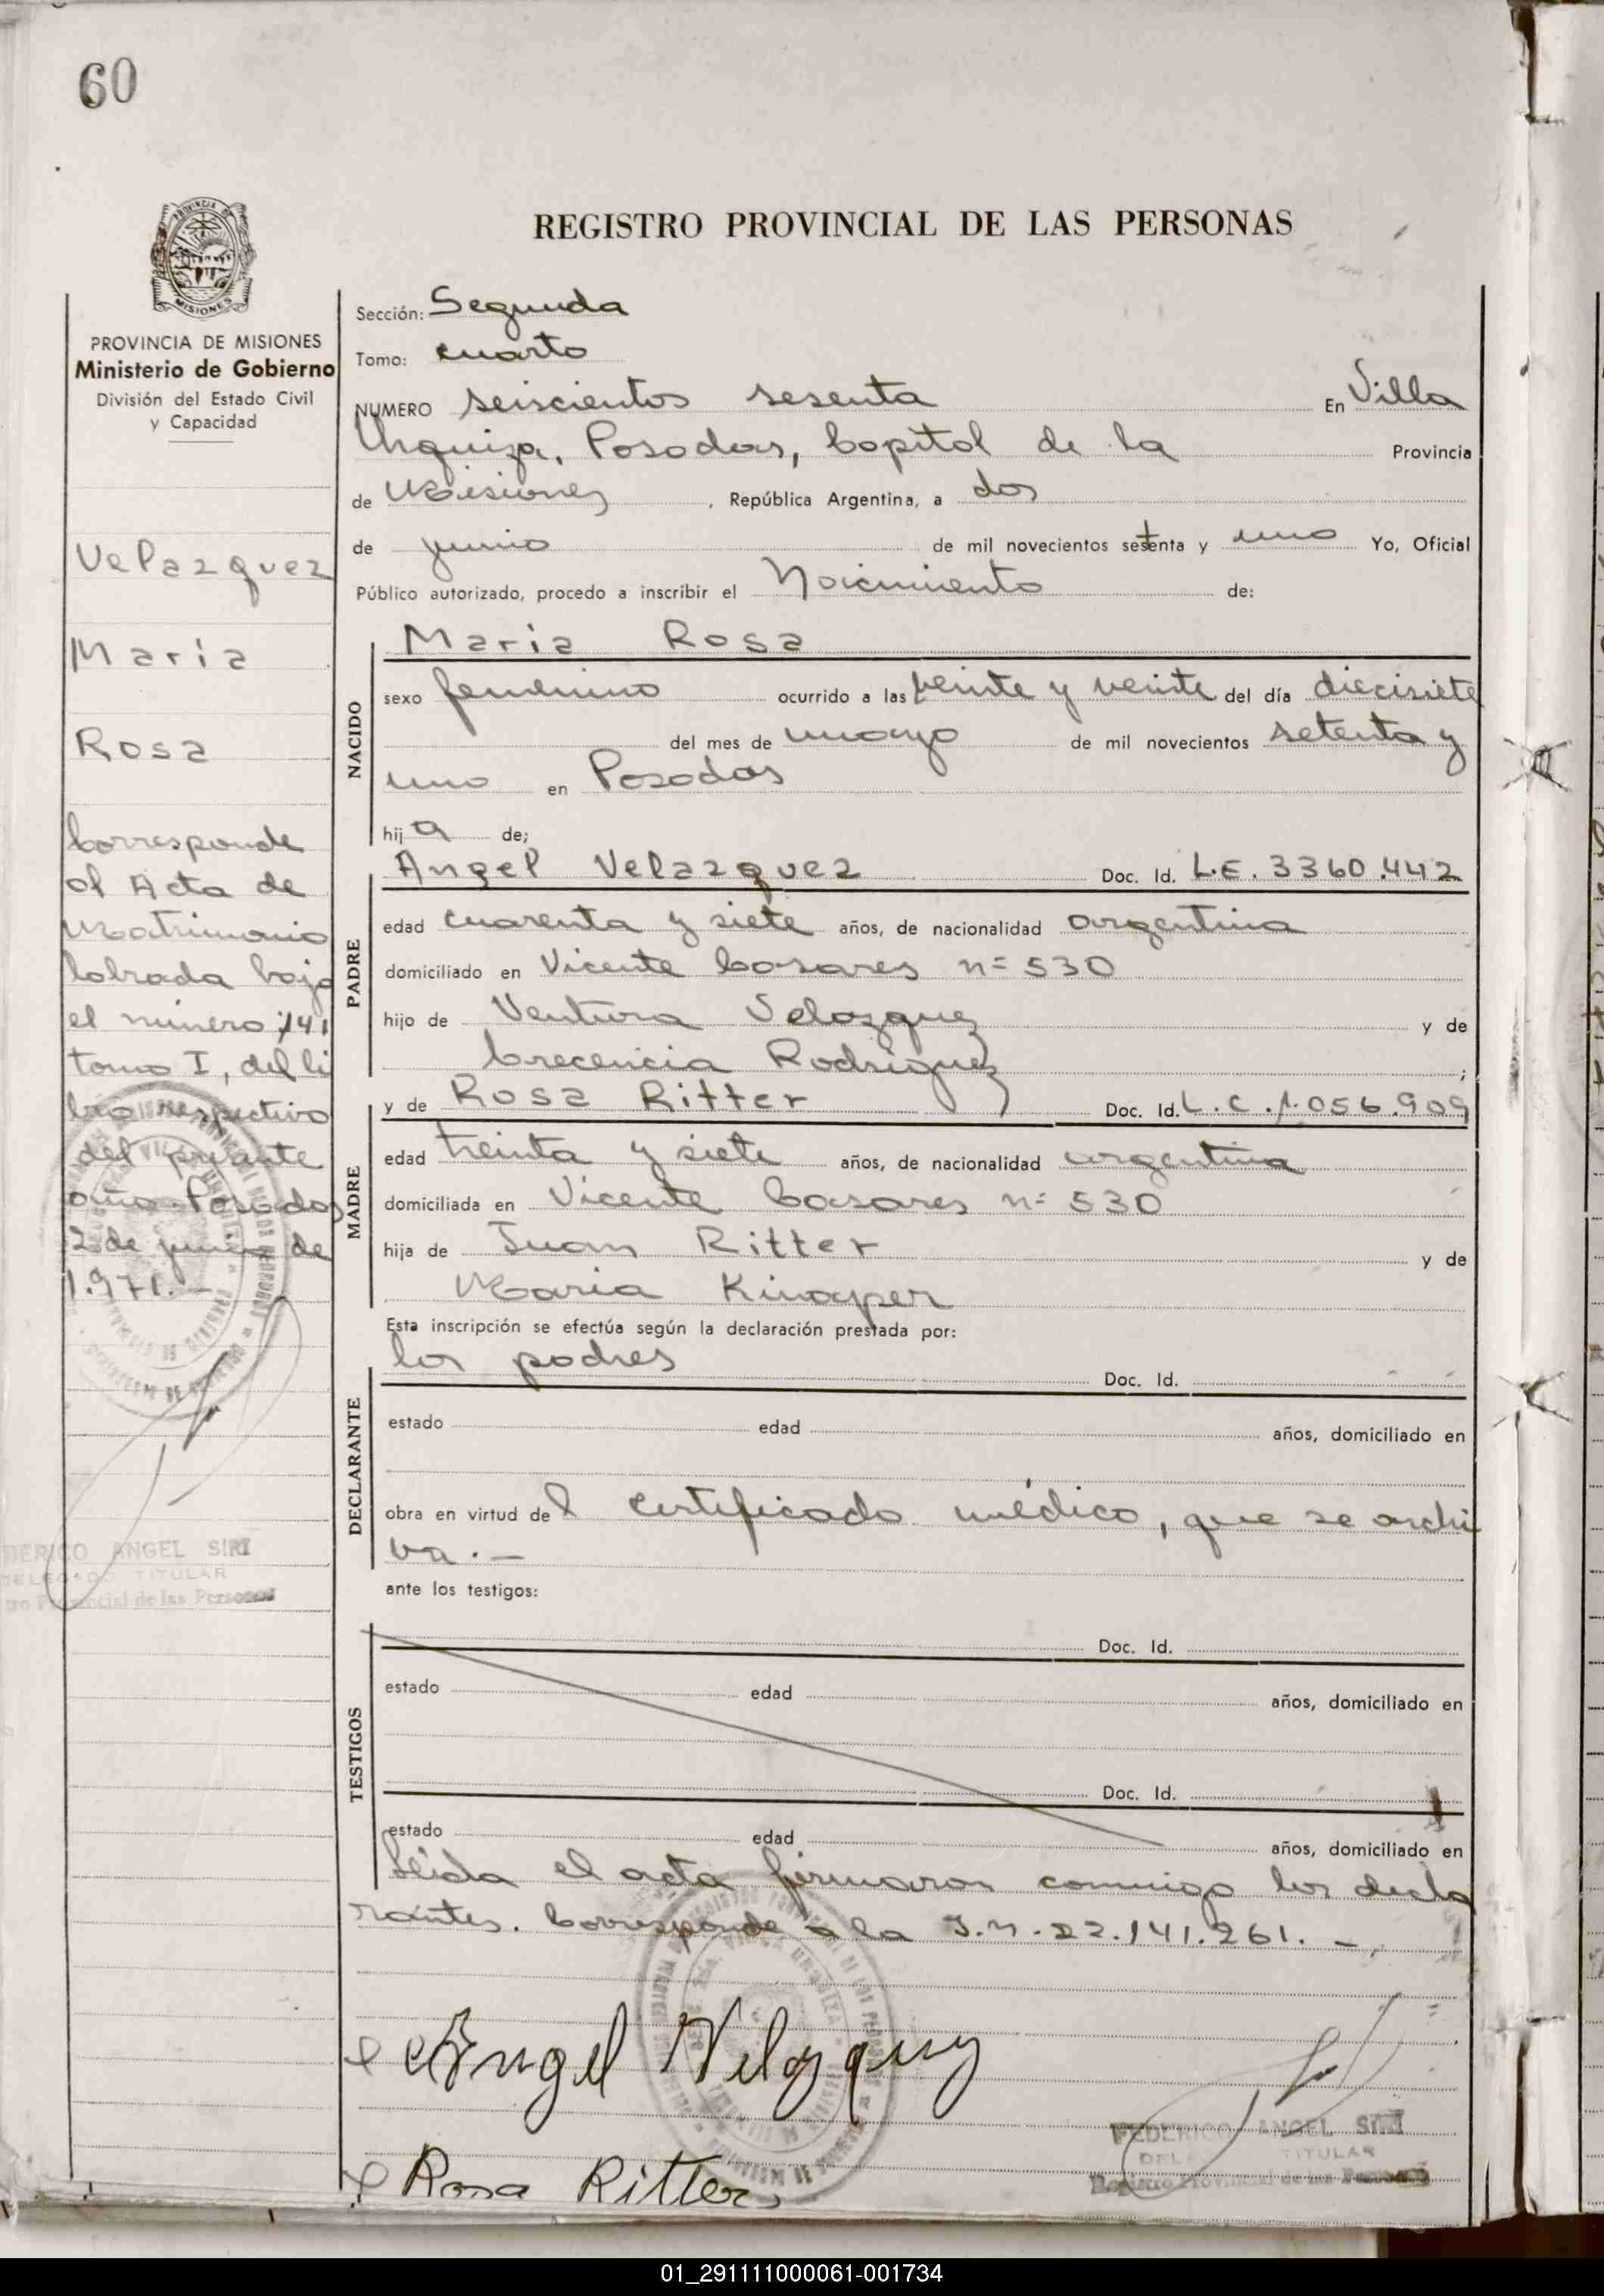 60
REGISTRO PROVINCIAL DE LAS PERSONAS
PROVINCIA DE MISIONES
Ministerio de Gobierno
División del Estado Civil
y Capacidad
Velazquez
María
Rosa
Corresponde
al Acta de
Matrimonio
labrada bajo
el número 141
tomo I, del li
bro respectivo
del presente
año. Posadas
2 de junio de
1.971.-
FEDERICO ANGEL SIRI
DELEGADO TITULAR
Registro Provincial de las Personas
Sección: Segunda
Tomo: cuarto
NUMERO seiscientos sesenta En Villa
Urquiza, Posadas, Capital de la Provincia
de Misiones, República Argentina, a dos
de junio de mil novecientos setenta y uno Yo, Oficial
Público autorizado, procedo a inscribir el Nacimiento de:
NACIDO
María Rosa
sexo femenino ocurrido a las veinte y veinte del día diecisiete
del mes de mayo de mil novecientos setenta y
uno en Posadas
hija de;
PADRE
Angel Velazquez Doc. Id. L.E. 3360.442
edad cuarenta y siete años, de nacionalidad argentina
domiciliado en Vicente Casares n= 530
hijo de Ventura Velazquez y de
Crecencia Rodriguez;
MADRE
y de Rosa Ritter Doc. Id. L.C. 1.056.909
edad treinta y siete años, de nacionalidad argentina
domiciliada en Vicente Casares n= 530
hija de Juan Ritter y de
Maria Kinayper
Esta inscripción se efectúa según la declaración prestada por:
DECLARANTE
los padres Doc. Id.
estado edad años, domiciliado en
obra en virtud del certificado médico, que se archi
va.-
ante los testigos:
TESTIGOS
Doc. Id.
estado edad años, domiciliado en
Doc. Id.
estado edad años, domiciliado en
Leída el acta firmaron conmigo los decla
rantes. Corresponde a la I.N. 22.141.261.-
Angel Velazquez
Rosa Ritter
FEDERICO ANGEL SIRI
TITULAR
Registro Provincial de las Personas
01_291111000061-001734